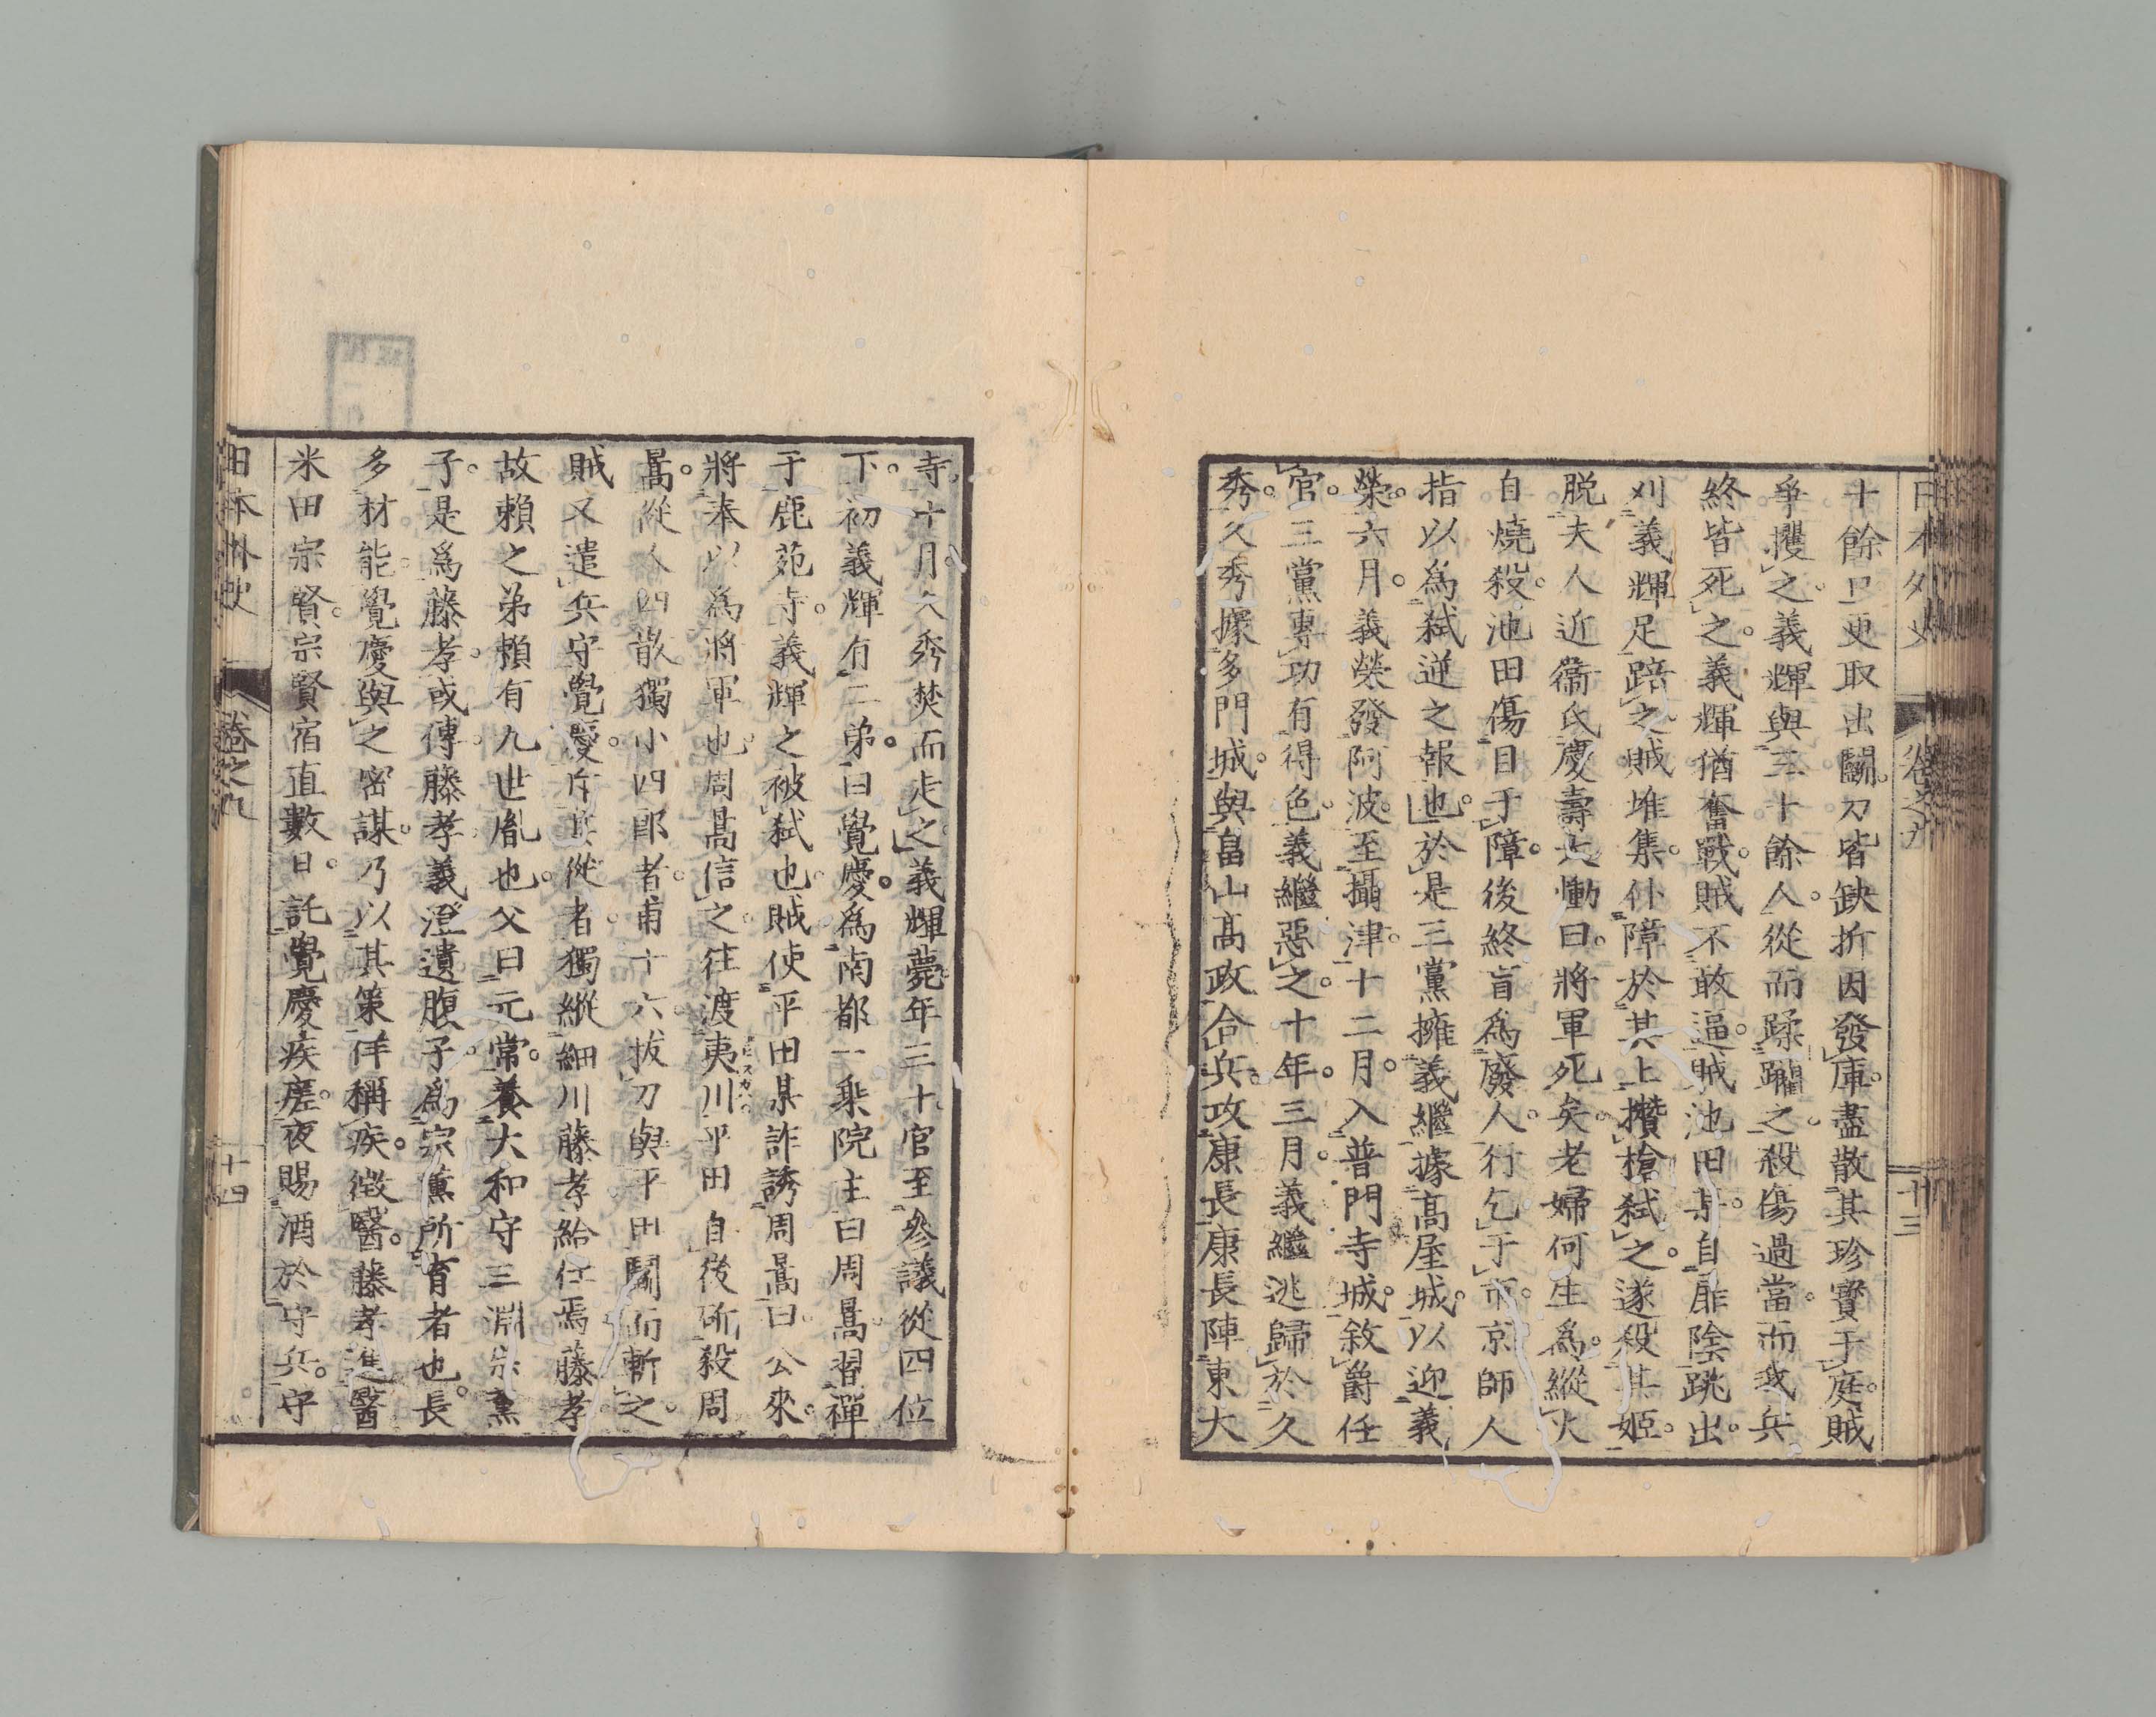 十餘口更取出鬭。刀皆缺折因發庫。盡散其珍寶于庭。賊
爭攫之。義輝與三十餘人。從而蹂躪之。殺傷過當。而我兵
終皆死之。義輝猶奮戰。賊不敢逼。賊池田某。自扉陰跳出。
刈義輝足。踣之。賊堆集。仆障於其上。攢槍弑之。遂殺其姬。
脱夫人近衞氏慶壽大慟曰。將軍死矣。老婦何生爲。縱火
自燒殺。池田傷目于障。後終盲爲廢人。行乞于市。京師人
指以爲弑逆之報也。於是三黨擁義繼據高屋城。以迎義
榮。六月。義榮發阿波。至攝津。十二月。入普門寺城。敘爵任
官。三黨專功有得色。義繼惡之。十年。三月。義繼逃歸於久
秀。久秀據多門城。與畠山高政合兵。攻康長康長陣東大
日本外史 卷之九 十三
寺。十月久秀焚而走之。義輝薨。年三十。官至參議從四位
下。初義輝有二弟。曰覺慶。爲南都一乘院主曰周暠。習禪
于鹿苑寺。義輝之被弑也。賊使平田某詐誘周暠。曰公來。
將奉以爲將軍也。周暠信之往渡夷川平田自後斫殺周
暠。從人四散獨小四郎者。甫十六。拔刀與平田鬭而斬之。
賊又遣兵守覺慶。斥其從者。獨縱細川藤孝給仕焉藤孝
故賴之弟賴有九世胤也。父曰元常。養大和守三淵宗薰
子。是爲藤孝。或傳藤孝義澄遺腹子爲宗薰所育者也。長
多材能。覺慶與之密謀。乃以其策佯稱疾。徵醫。藤孝進醫
米田宗賢。宗賢宿直數日。託覺慶疾瘥。夜賜酒於守兵。守
日本外史 卷之九 十四